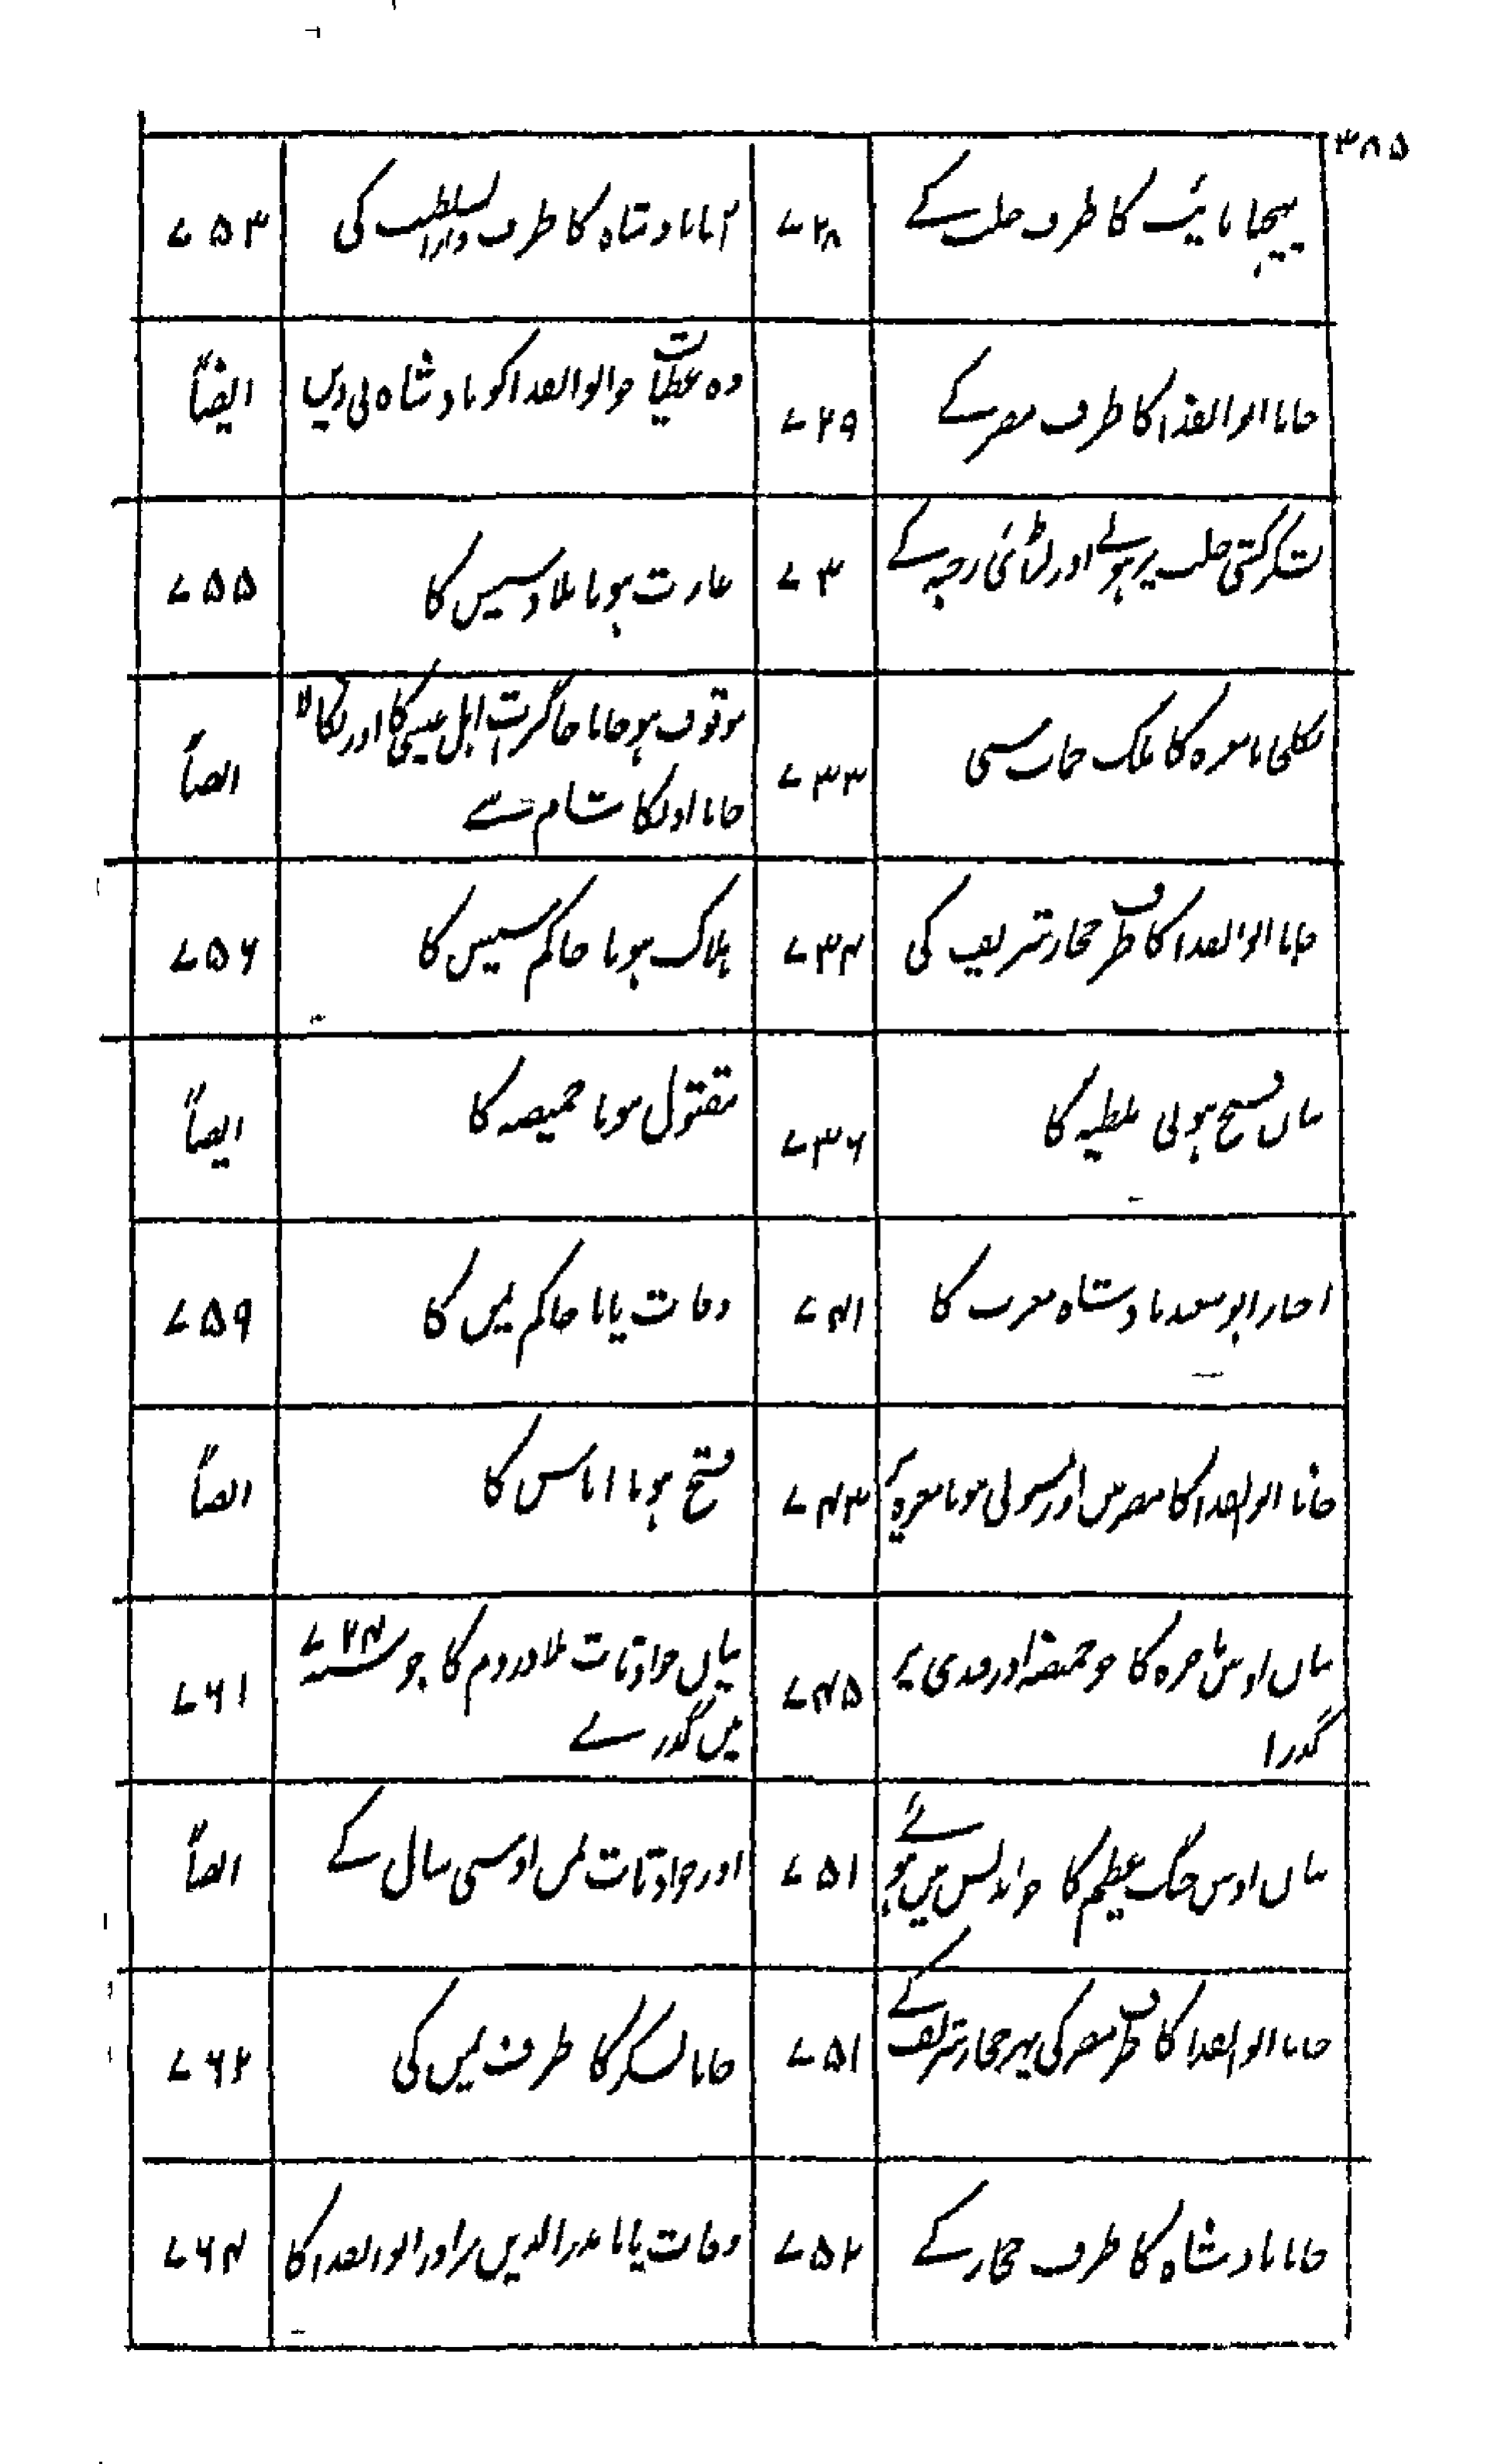 ۳۸۵
پہچا نائب کا طرف حلب کے
۷۲۸
آنا بادشاہ کا طرف دارالسلطنت کی
۷۵۳
جانا ابوالفدا کا طرف مصر کے
۷۲۹
وہ عطیات جو ابوالفدا کو بادشاہ نی دیں
ایضاً
لشکر کشی حلب پر ہونے اور لڑائی رحبہ کے
۷۳
غارت ہونا بلاد سیس کا
۷۵۵
نکلی نا معرہ کا ملک حماہ سی
۷۳۳
موقوف ہو جانا جاگیرات اہل عیسیٰ کا اور نکالا
جانا اونکا شام سے
ایضاً
جانا ابوالفدا کا طرف حجاز شریف کی
۷۳۴
ہلاک ہونا حاکم سیس کا
۷۵۶
بیان فتح ہونی ملطیہ کا
۷۳۶
مقتول ہونا حمیصہ کا
ایضاً
اخبار ابو سعید بادشاہ مغرب کا
۷۴۱
وفات پانا حاکم یمن کا
۷۵۹
جانا ابوالفدا کا مصر میں اور متولی ہونا معرہ پر
۷۴۳
فتح ہونا اناس کا
ایضاً
بیان اوس ماجرہ کا جو حمیضہ اور مہدی پر
گذرا
۷۴۵
بیان حادثات بلاد روم کا جو سنہ ۷۲۴
میں گذرے
۷۶۱
بیان اوس جنگ عظیم کا جو اندلس میں ہوئے
۷۵۱
اور حادثات یمن اوسی سال کے
ایضاً
جانا ابوالفدا کا طرف مصر کی پھر حجاز شریف کے
۷۵۱
جانا لشکر کا طرف یمن کی
۷۶۲
جانا بادشاہ کا طرف حجاز کے
۷۵۲
وفات پانا بدرالدین برادر ابوالفدا کا
۷۶۴